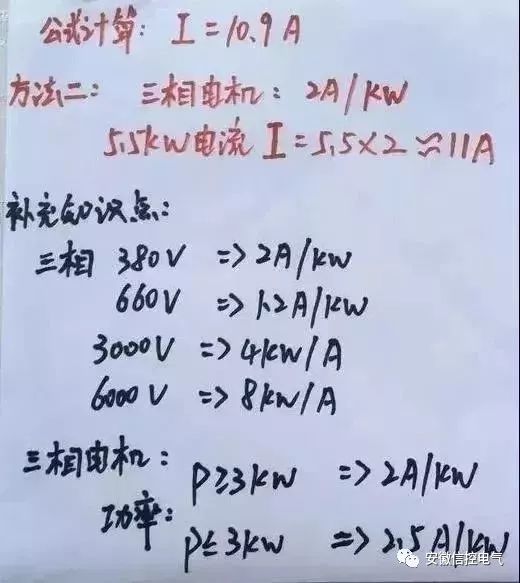 公式计算: I=10.9A
方法二: 三相电机: 2A/KW
5.5KW电流 I=5.5×2≈11A
补充知识点:
三相 380V => 2A/KW
660V => 1.2A/KW
3000V => 4KW/A
6000V => 8KW/A
三相电机: P≥3KW => 2A/KW
功率: P≤3KW => 2.5A/KW
安徽信控电气